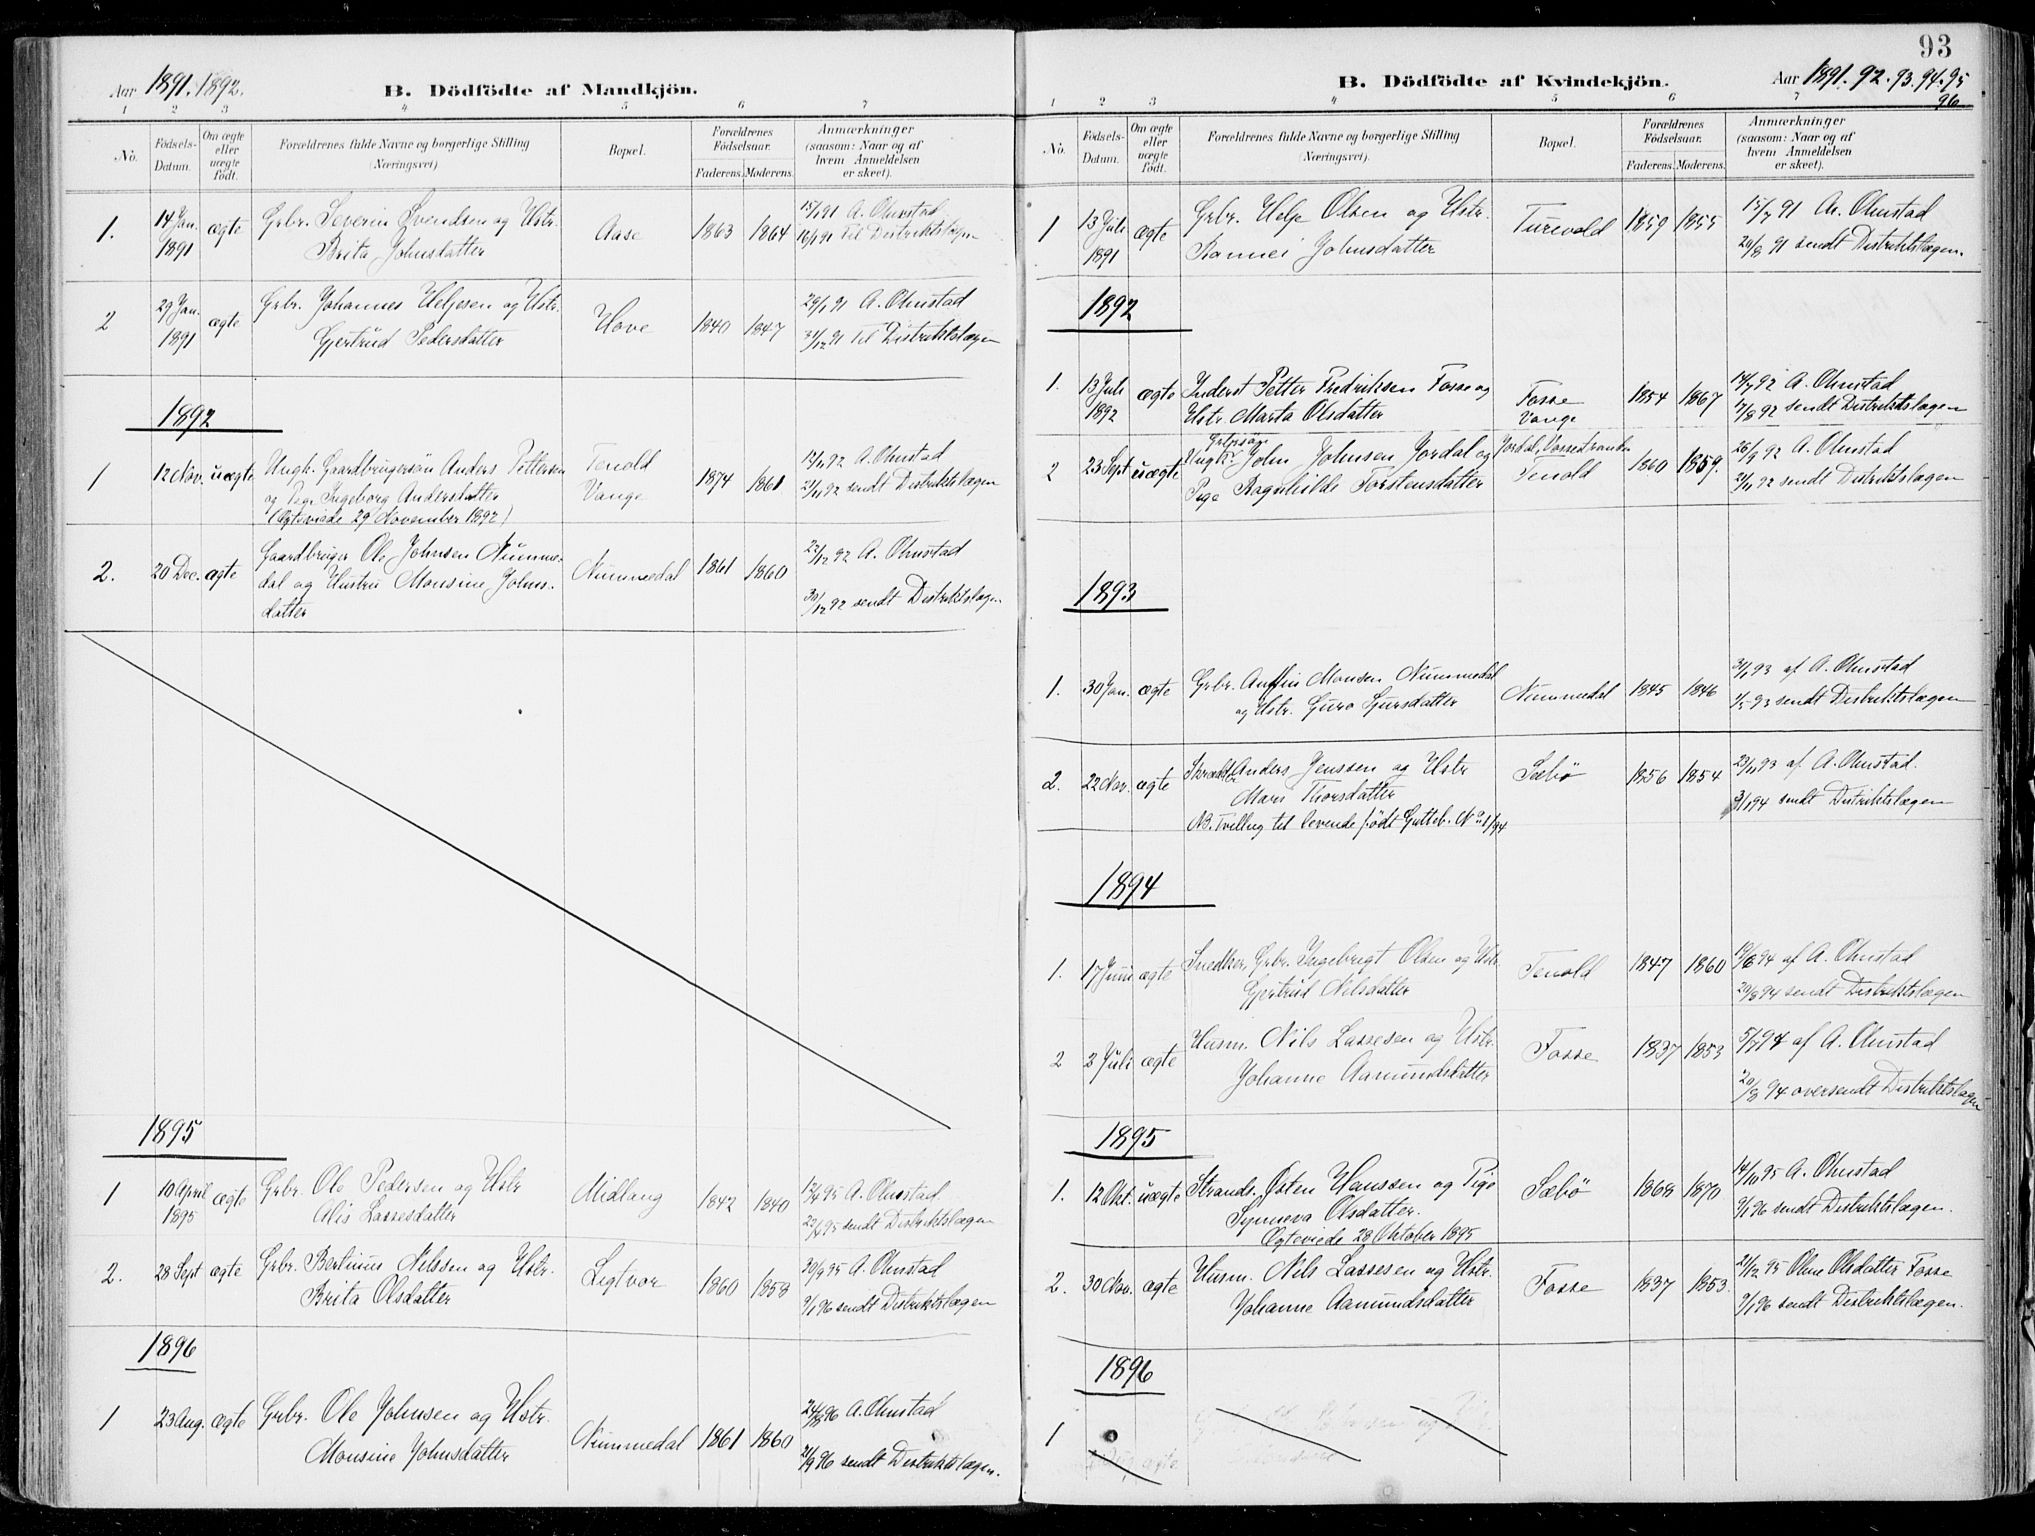 Aar 1891. 1892.
B. Dödfödte af Mandkjön.
1 2 3 4 5 6 7
No. Födsels-Datum. Om ægte eller uægte födt. Forældrenes fulde Navne og borgerlige Stilling (Næringsvei) Bopæl. Forældrenes Födselsaar. Faderens. Moderens. Anmærkninger (saasom: Naar og af hvem Anmeldelsen er skeet).
1. 14 Jan. 1891 ægte Grbr. Severin Svendsen og Hstr. Aase 1863 1864 15/1 91 A. Ohnstad
Brita Johnsdatter 16/1 91 Til Distriktslægen
2 29 Jan. 1891 ægte Grbr. Johannes Helgesen og Hstr. Hove 1840 1847 29/1 91 A. Ohnstad
Gjertrud Pedersdatter 31/12 91 Til Distriktslægen
1892
1 12 Nov. uægte Ungk. Gaardbrugersön Anders Pettersen Tenold 1874 1861 12/11 92 A. Ohnstad
og Pige Ingeborg Andersdatter Vange 21/11 92 sendt Distriktslægen
(Ægteviede 29 November 1892)
2. 20 Dec. ægte Gaardbruger Ole Johnsen Numme- Nummedal 1861 1860 22/12 92 A. Ohnstad
dal og Hustru Monsine Johns- 30/12 92 sendt Distriktslægen
datter
1895
1 10 April 1895 ægte Grbr. Ole Pedersen og Hstr Midlang 1842 1840 12/4 95 A. Ohnstad
Alis Lassesdatter 22/4 95 sendt Distriktslægen
2. 28 Sept ægte Grbr. Bertinus Nilssen og Hstr. Ligtvor 1860 1858 30/9 95 A. Ohnstad
Brita Olsdatter 9/1 96 sendt Distriktslægen
1896
1 23 Aug. ægte Grbr. Ole Johnsen og Hstr. Nummedal 1861 1860 24/8 96 A. Ohnstad
Monsine Johnsdatter 21/9 96 sendt Distriktslægen.
93
B. Dödfödte af Kvindekjön.
Aar 1891. 92. 93. 94. 95
96
1 2 3 4 5 6 7
No. Födsels-Datum. Om ægte eller uægte födt. Forældrenes fulde Navne og borgerlige Stilling (Næringsvei). Bopæl. Forældrenes Födselsaar. Faderens. Moderens. Anmærkninger (saasom: Naar og af hvem Anmeldelsen er skeet).
1 13 Juli 1891 ægte Grbr. Helge Olsen og Hstr. Turvold 1859 1855 15/7 91 A. Ohnstad
Rannei Johnsdatter 20/8 91 sendt Distriktslægen.
1892
1. 13 Juli 1892 ægte Inderst Petter Fredriksen Fosse og Fosse 1854 1867 14/7 92 A. Ohnstad
Hstr. Marta Olsdatter Vange 17/8 92 sendt Distriktslægen
2 23 Sept uægte Ungk. John Johnsen Jordal og Jordal, Vossestranden 1860 1859. 26/9 92 A. Ohnstad
Pige Ragnhilde Torstensdatter Tenold 21/11 92 sendt Distriktslægen
1893
1. 30 Jan. ægte Grbr. Anfin Monsen Nummedal Nummedal 1845 1846 31/1 93 af A. Ohnstad
og Hstr. Guro Sjursdatter 1/5 93 sendt Distriktslægen
2. 22 Nov. ægte Skrædder Anders Jenssen og Hstr Sæbø 1856 1854 23/11 93 af A. Ohnstad.
Mari Thorsdatter 3/1 94 sendt Distriktslægen
NB. Tvilling til levende født Gutteb. No 1/94
1894
1. 17 Juni ægte Snedker, Grbr. Ingebrigt Olsen og Hstr. Tenold 1847 1860 19/6 94 af A. Ohnstad
Gjertrud Nilsdatter 20/8 94 sendt Distriktslægen
2 2 Juli ægte Husm. Nils Lassesen og Hstr. Fosse 1837 1853 5/7 94 af A. Ohnstad
Johanne Aamundsdatter 20/8 94 oversendt Distriktslægen
1895
1. 12 Okt. uægte Strands. Østen Hanssen og Pige Sæbø 1868 1870 14/10 95 A. Ohnstad
Synneva Olsdatter. 9/1 96 sendt Distriktslægen.
Ægteviede 28 Oktober 1895
2. 30 Nov. ægte Husm. Nils Lassesen og Hstr. Fosse 1837 1853. 21/12 95 Oline Olsdatter Fosse
Johanne Aamundsdatter 9/1 96 sendt Distriktslægen.
1896
1